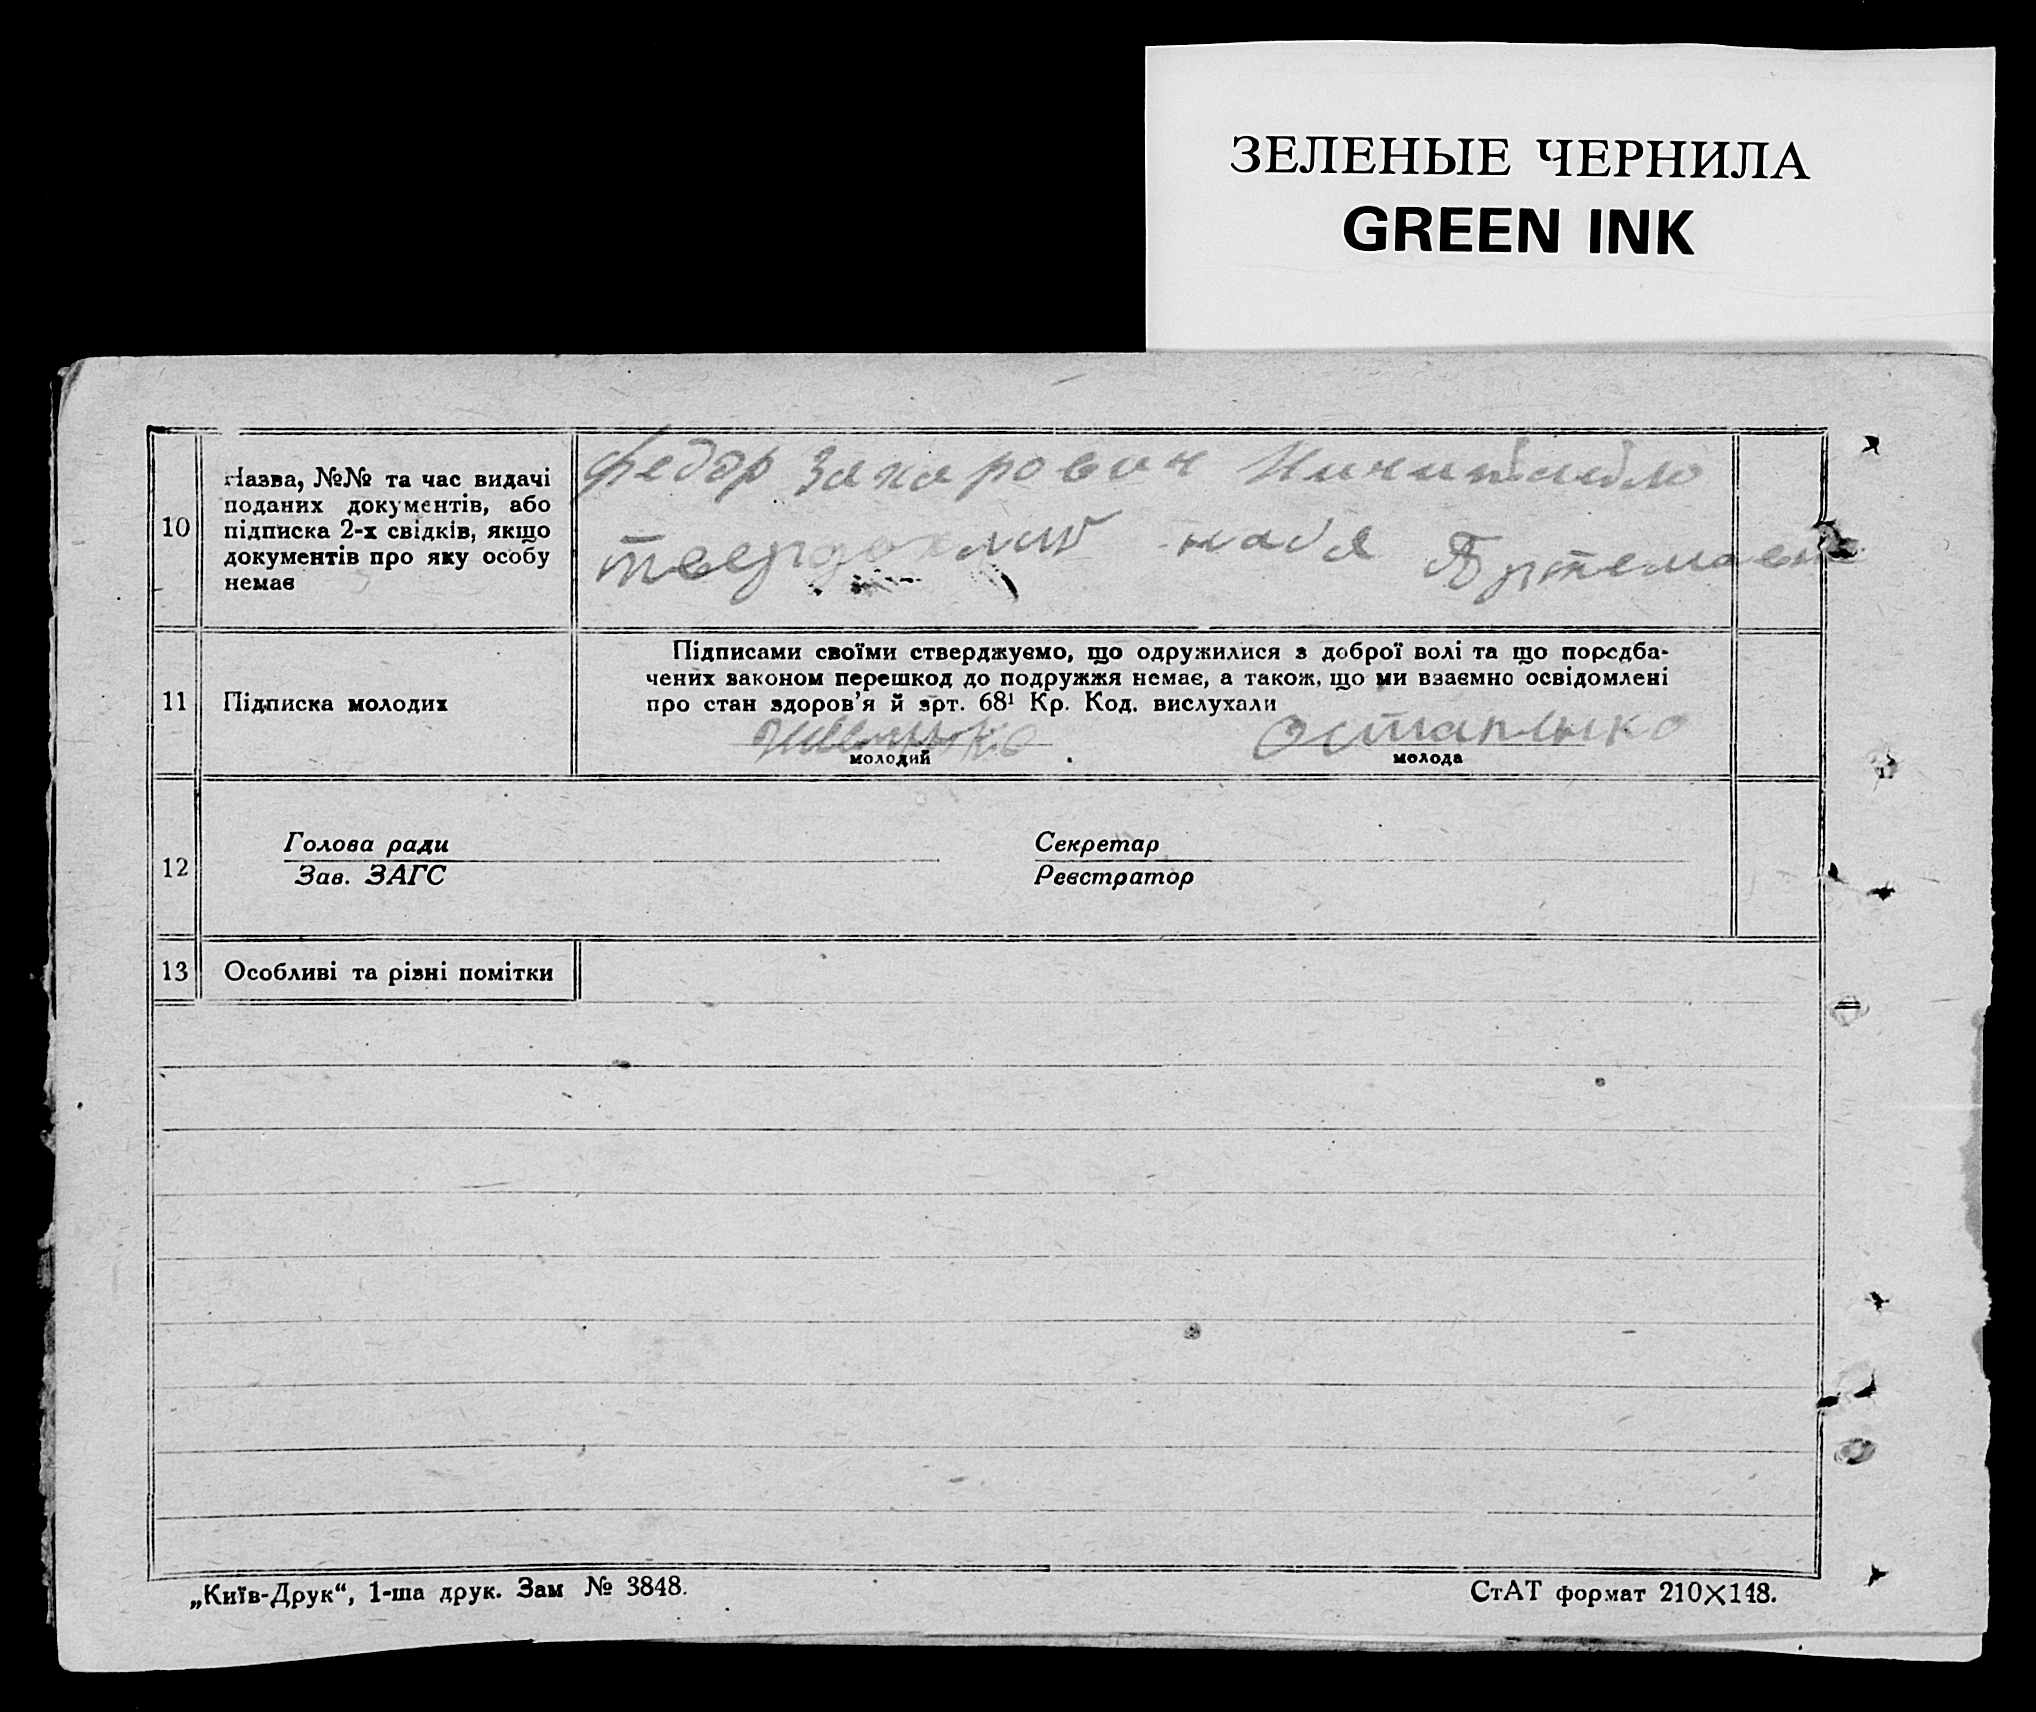 ЗЕЛЕНЫЕ ЧЕРНИЛА
GREEN INK
10
Назва, №№ та час видачі
поданих документів, або
підписка 2-х свідків, якщо
документів про яку особу
немає
Федор Захарович
Твердохлиб надя Артемовна
11
Підписка молодих
Підписами своїми стверджуємо, що одружилися з доброї волі та що передба-
чених законом перешкод до подружжя немає, а також, що ми взаємно освідомлені
про стан здоров'я й арт. 68¹ Кр. Код. вислухали
Остапенко
молодий
молода
12
Голова ради
Зав. ЗАГС
Секретар
Реєстратор
13
Особливі та різні помітки
„Київ-Друк“, 1-ша друк. Зам № 3848.
СтАТ формат 210×148.